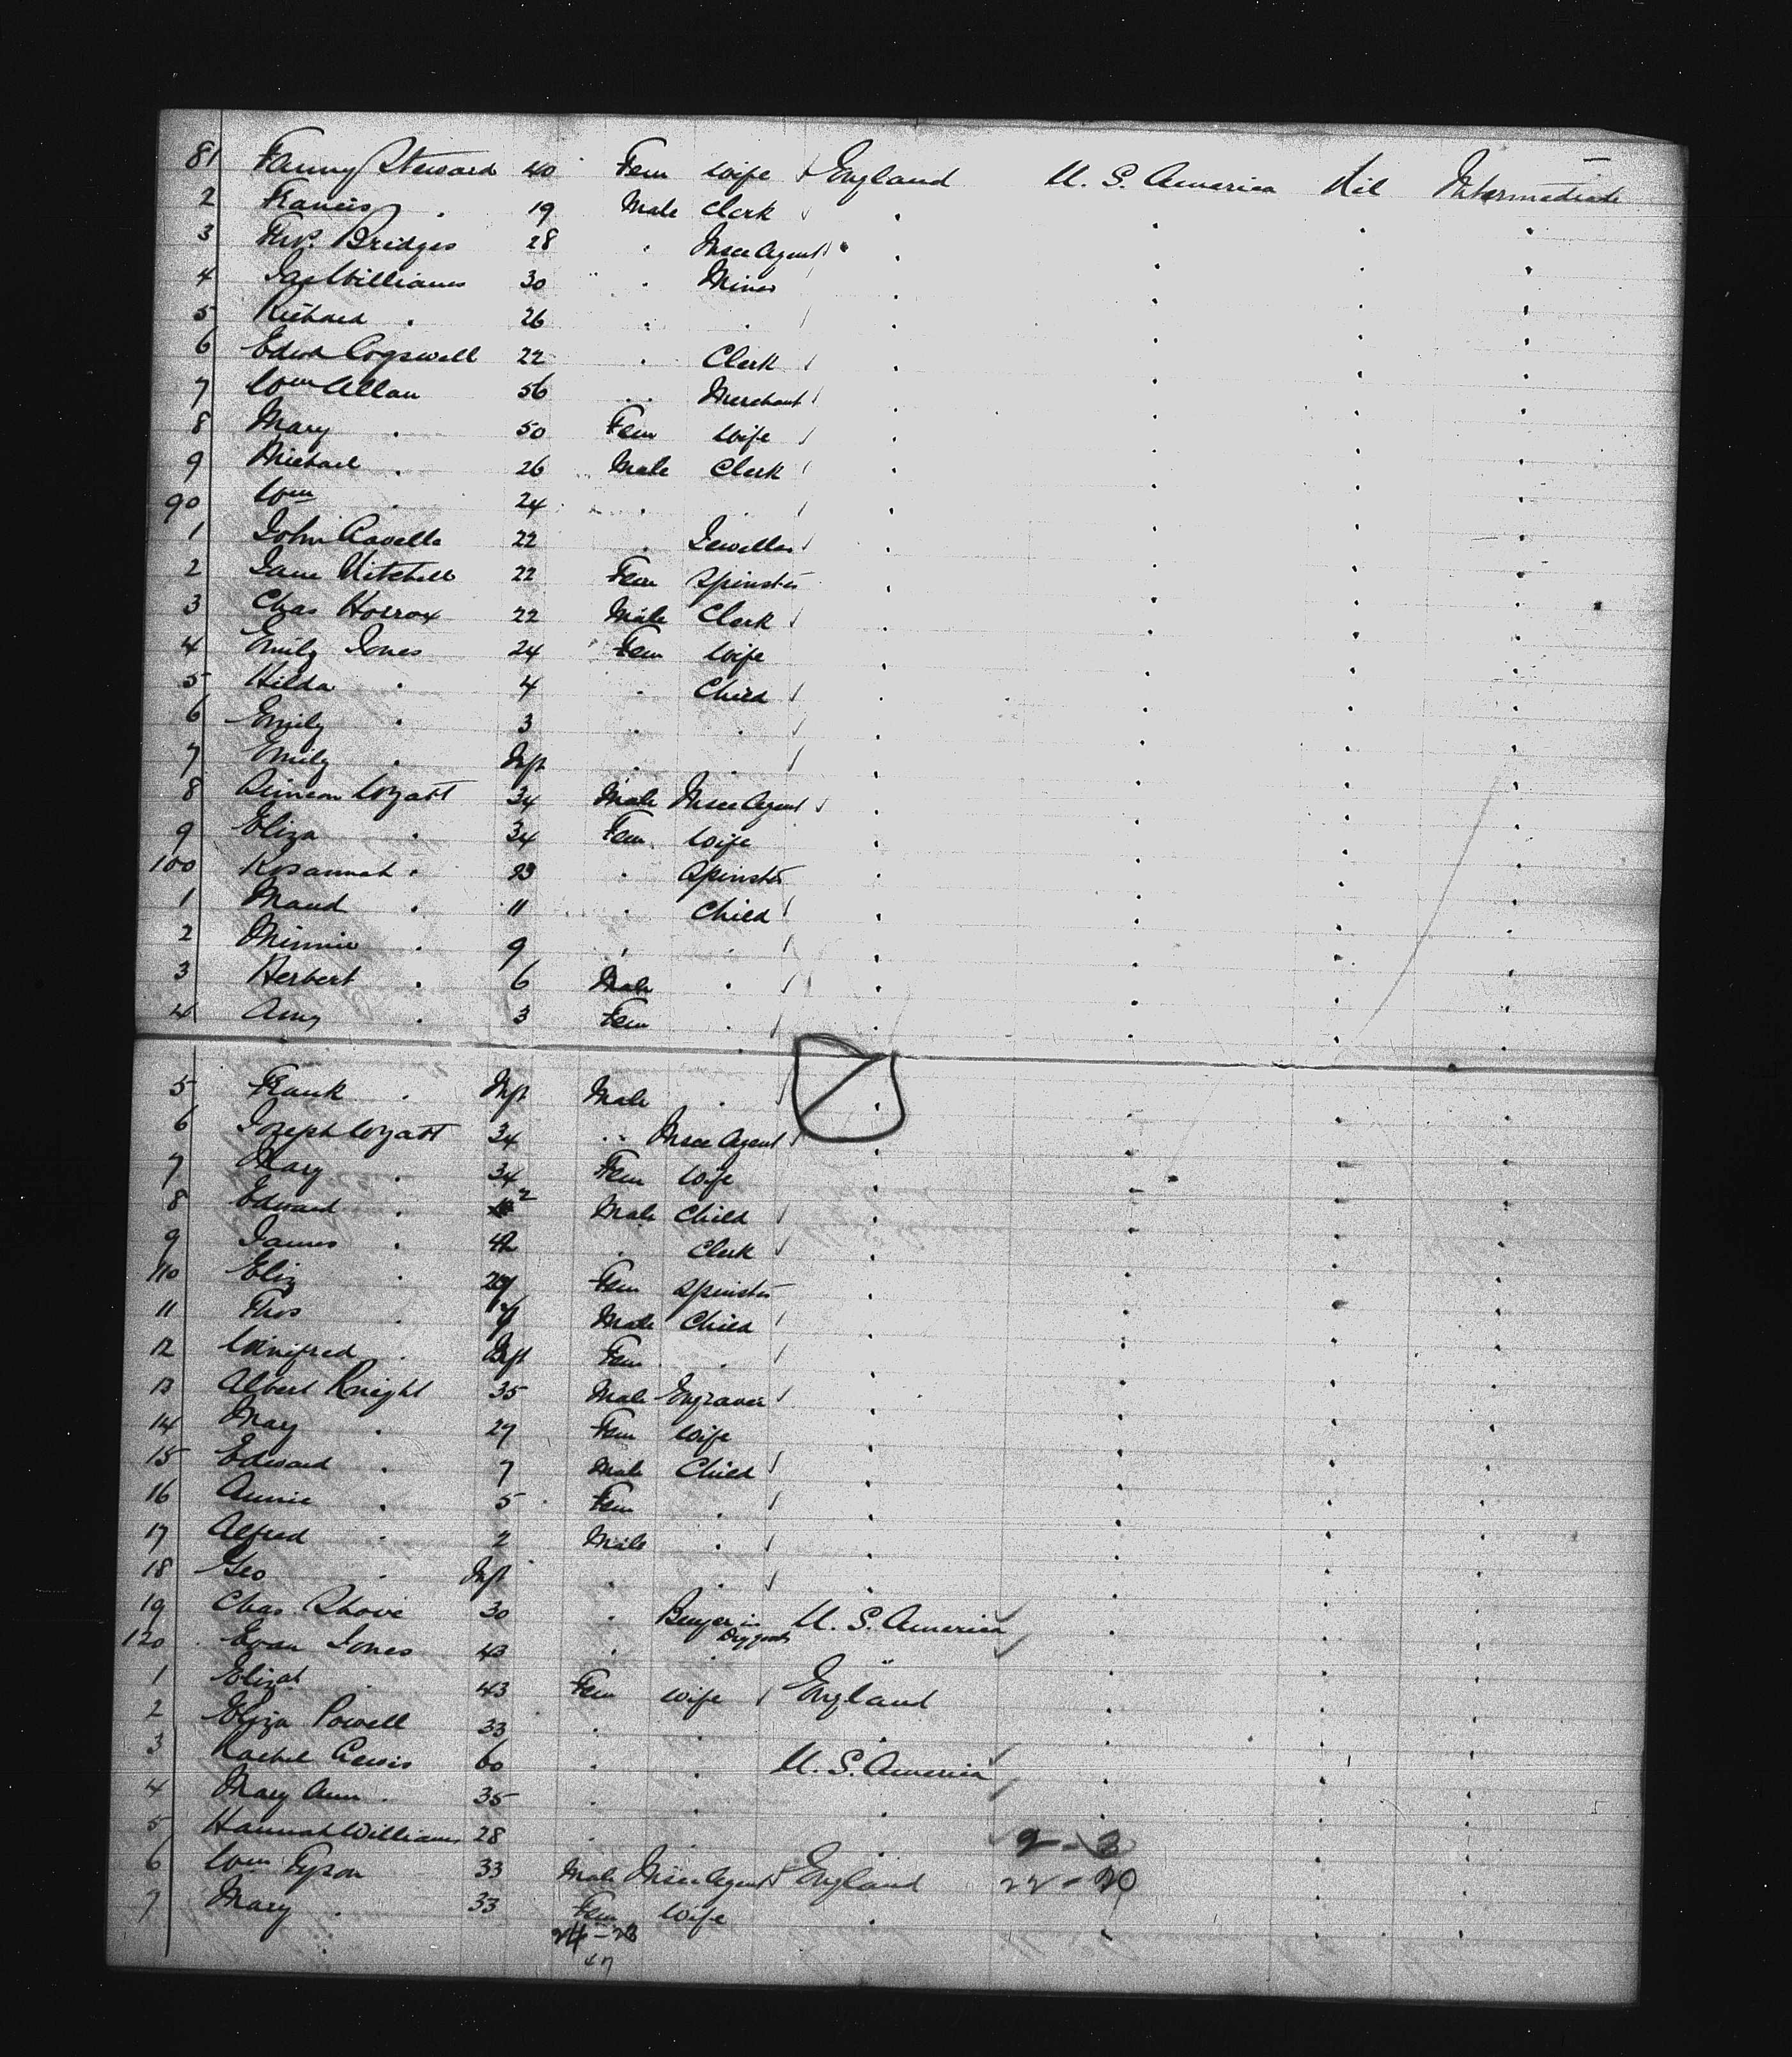 81 Fanny Steward 40 Fem Wife England U. S. America Nil Intermediate
2 Francis . 19 Male Clerk
3 Bridges 28 . Insce Agent
4 Jas Williams 30 . Miner
5 Richard . 26 . .
6 Edwd Cogswell 22 . Clerk
7 Wm Allan 56 . Merchant
8 Mary . 50 Fem Wife
9 Michael . 26 Male Clerk
90 Wm . 24 . .
1 John 22 . Jeweller
2 Jane Mitchell 22 Fem Spinster
3 Chas Horrox 22 Male Clerk
4 Emily Jones 24 Fem Wife
5 Hilda . 4 . Child
6 Emily . 3 . .
7 Emily . Inft . .
8 Simeon Wyatt 34 Male Insce Agent
9 Eliza . 34 Fem Wife
100 Rosannah . 23 . Spinster
1 Maud . 11 . Child
2 Minnie . 9 . .
3 Herbert . 6 Male .
4 Amy . 3 Fem .
5 Frank . Inft Male .
6 Joseph Wyatt 34 . Insce Agent
7 Mary . 34 Fem Wife
8 Edward . Male Child
9 James . . Clerk
110 Eliz . Fem Spinster
11 Thos . Male Child
12 Winifred . Inft Fem .
13 Albert Knight 35 Male Engraver
14 Mary . 29 Fem Wife
15 Edward . 7 Male Child
16 Annie . 5 Fem .
17 Alfred . 2 Male .
18 Geo . Inft . .
19 Chas Shove 30 . Buyer in Drygoods U. S. America
120 Evan Jones 43 . . "
1 Elizah . 43 Fem Wife England
2 Eliza Powell 33 . .
3 Rachel Lewis 60 . . U. S. America
4 Mary Ann . 35 . . .
5 Hannah Williams 28 . . . 2 - 3
6 Wm Tyson 33 Male Insce Agent England 22 - 20
7 Mary . 33 Fem Wife .
24 - 23
47